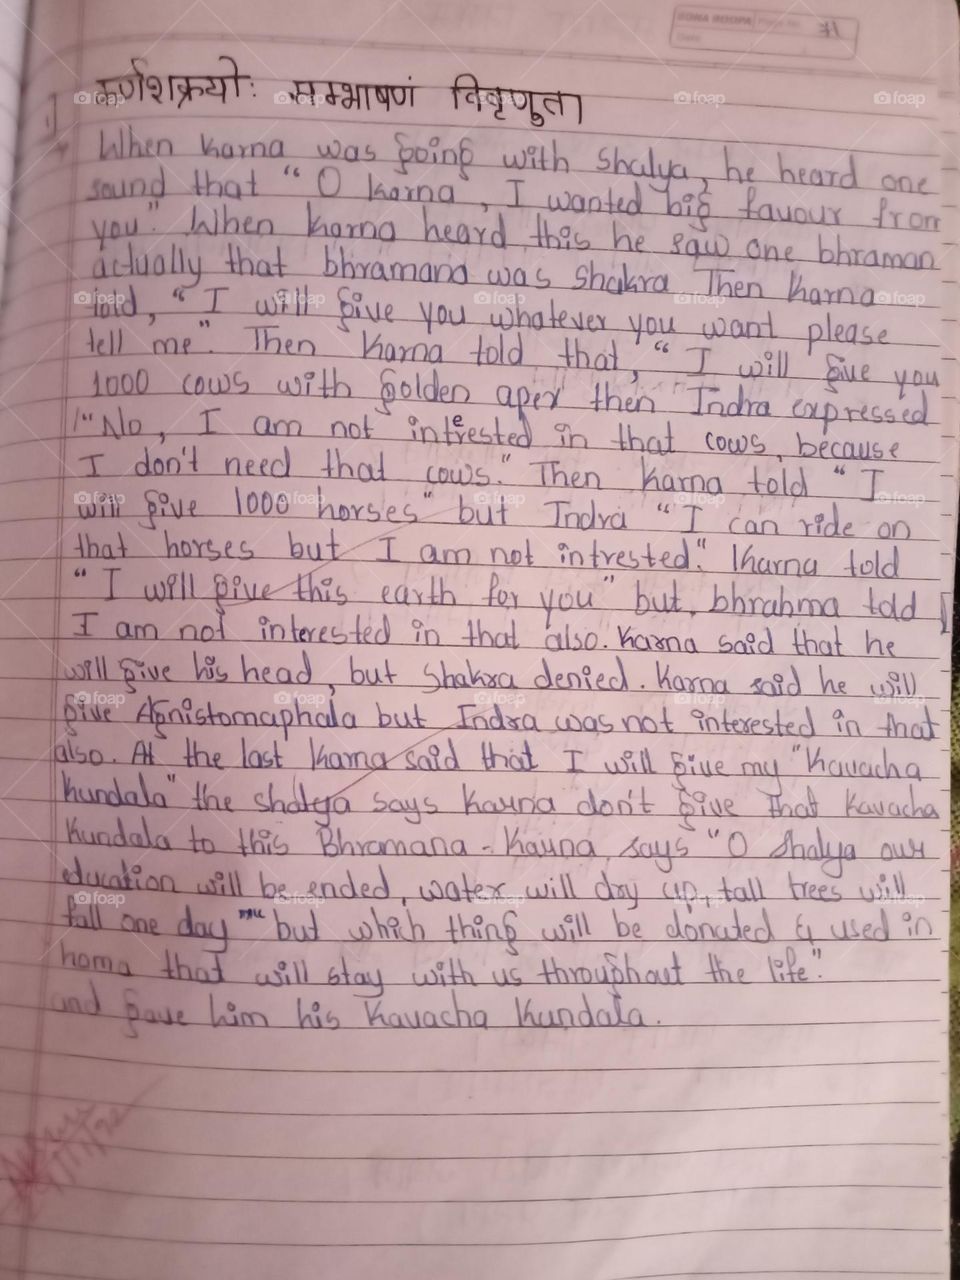 कर्णशक्रयोः सम्भाषणं विवृणुत।
1]
When Karna was going with Shalya, he heard one
sound that "O Karna, I wanted big favour from
you". When Karna heard this he saw one bhraman
actually that bhramana was Shakra Then Karna
told, "I will give you whatever you want please
tell me". Then Karna told that, "I will give you
1000 cows with golden aper then Indra expressed
"No, I am not interested in that cows, because
I don't need that cows." Then Karna told "I
will give 1000 horses" but Indra "I can ride on
that horses but I am not intrested". Karna told
"I will give this earth for you" but, bhrahma told
I am not interested in that also. Karna said that he
will give his head, but Shakra denied. Karna said he will
give Agnistomaphala but Indra was not interested in that
also. At the last Karna said that I will give my "Kavacha
Kundala" the shalya says Karna don't give that Kavacha
Kundala to this Bhramana - Karna says "O Shalya our
education will be ended, water will dry up, tall trees will
fall one day" but which thing will be donated & used in
homa that will stay with us throughout the life".
and gave him his Kavacha Kundala.